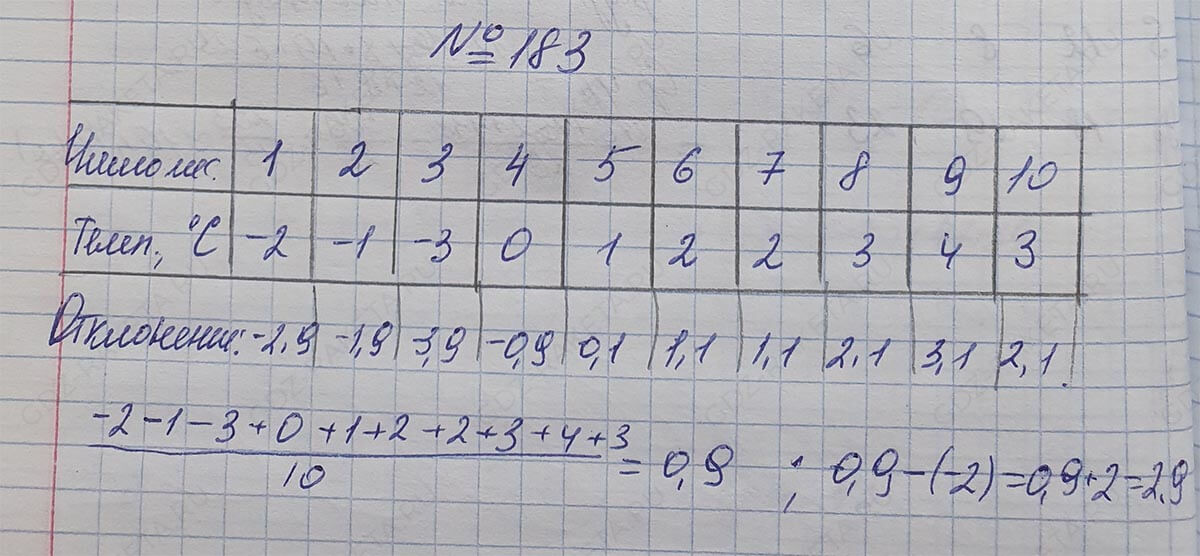 № 183
Число мес. 1 2 3 4 5 6 7 8 9 10
Темп., °C -2 -1 -3 0 1 2 2 3 4 3
Отклонение: -2,9 -1,9 3,9 -0,9 0,1 1,1 1,1 2,1 3,1 2,1.
-2-1-3+0+1+2+2+3+4+3
10
= 0,9 ; 0,9-(-2)=0,9+2=2,9